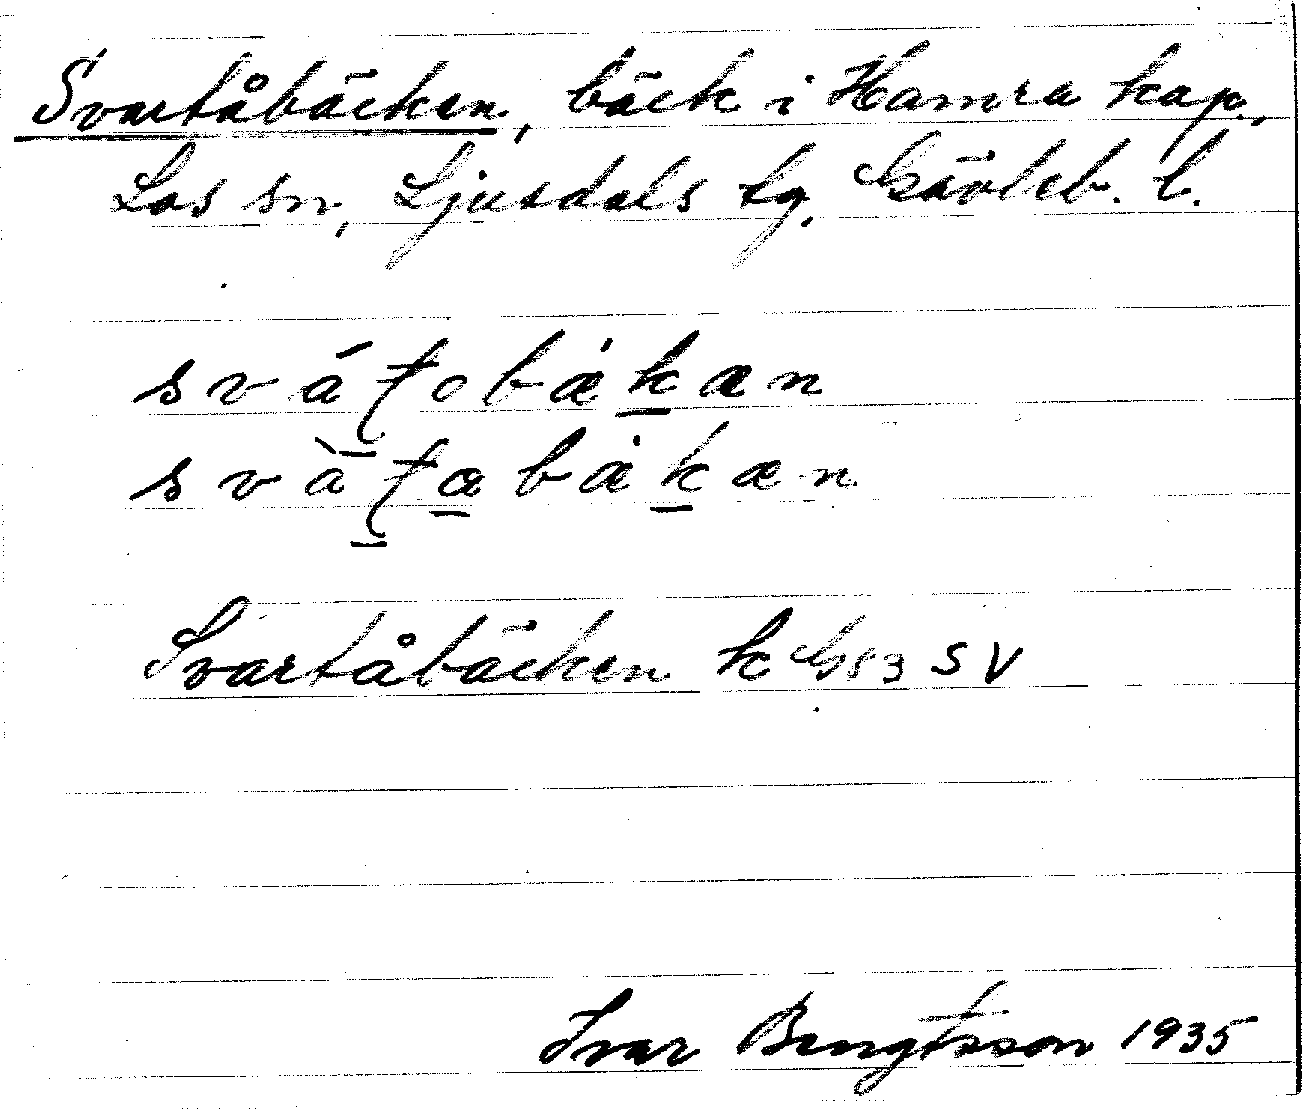 Svartåbäcken, bäck i Hamra kap.,
Los sn, Ljusdals tg, Gävleb. l.
svát̠obȧk̠æn
svàt̠a̠bȧk̠æn
Svartåbäcken k G 83 SV
Ivar Bengtsson 1935